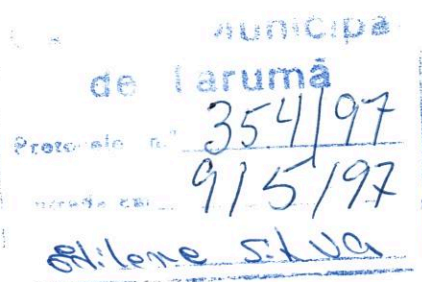 Municipa
de Tarumã
Protocolo n.º 354/97
9/5/97
Silva